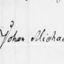 Johan Michae